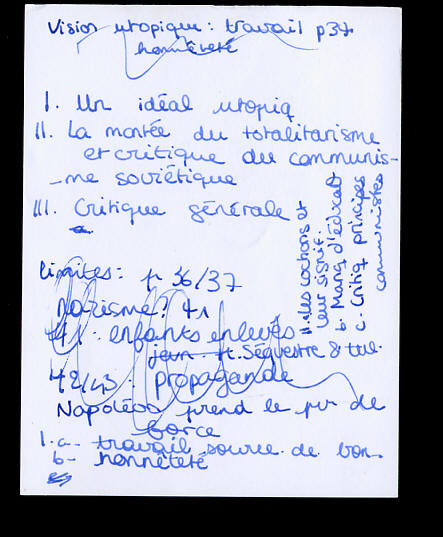 Vision utopique : travail p37
honnêteté
I. Un idéal utopiq
II. La montée du totalitarisme
et critique du communis-
-me soviétique
III. Critique générale
limites : p 36/37
nazisme ? 41
41 : enfants enlevés
Séquestre & tue
42/43 : propagande
Napoléon prend le pv de
force
1. a- travail source de bon-
b- honnêteté
les cochons et
leur signif.
b. Manq d'éducat
c. Critiq principes
communistes